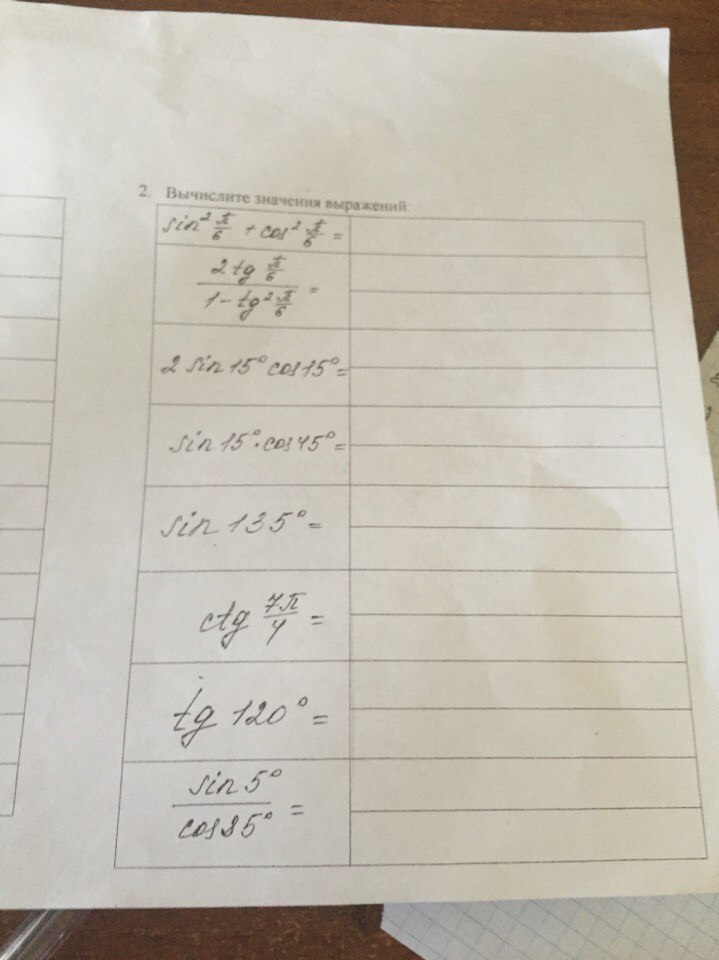 2. Вычислите значения выражений:
sin² π/6 + cos² π/6 =
2 tg π/6
1 - tg² π/6 =
2 sin 15° cos 15° =
sin 15° · cos 45° =
sin 135° =
ctg 7π/4 =
tg 120° =
sin 5°
cos 85° =